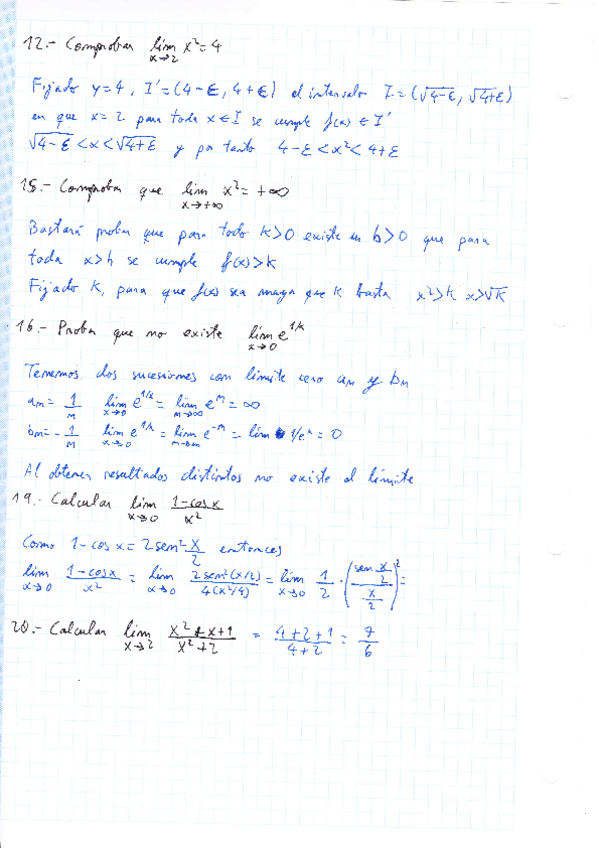 12.- Comprobar lim x→2 x² = 4
Fijado y=4, I'=(4-ε, 4+ε) el intervalo I=(√4-ε, √4+ε)
en que x=2 para todo x∈I se cumple f(x) ∈ I'
√4-ε < x < √4+ε y por tanto 4-ε < x² < 4+ε
15.- Comprobar que lim x→+∞ x² = +∞
Bastará probar que para todo K>0 existe un b>0 que para
toda x>h se cumple f(x)>k
Fijado K, para que f(x) sea mayor que K basta x²>k x>√K
16.- Probar que no existe lim x→0 e^1/x
Tenemos dos sucesiones con límite cero an y bn
an = 1/n lim x→0 e^1/x = lim n→∞ e^n = ∞
bn = -1/n lim x→0 e^1/x = lim n→∞ e^-n = lim 1/e^n = 0
Al obtener resultados distintos no existe el límite
19.- Calcular lim x→0 1-cos x / x²
Como 1-cos x = 2 sen² x/2 entonces
lim x→0 1-cos x / x² = lim x→0 2 sen²(x/2) / 4(x²/4) = lim x→0 1/2 · (sen x/2 / x/2)² =
20.- Calcular lim x→2 x²+x+1 / x²+2 = 4+2+1 / 4+2 = 7/6